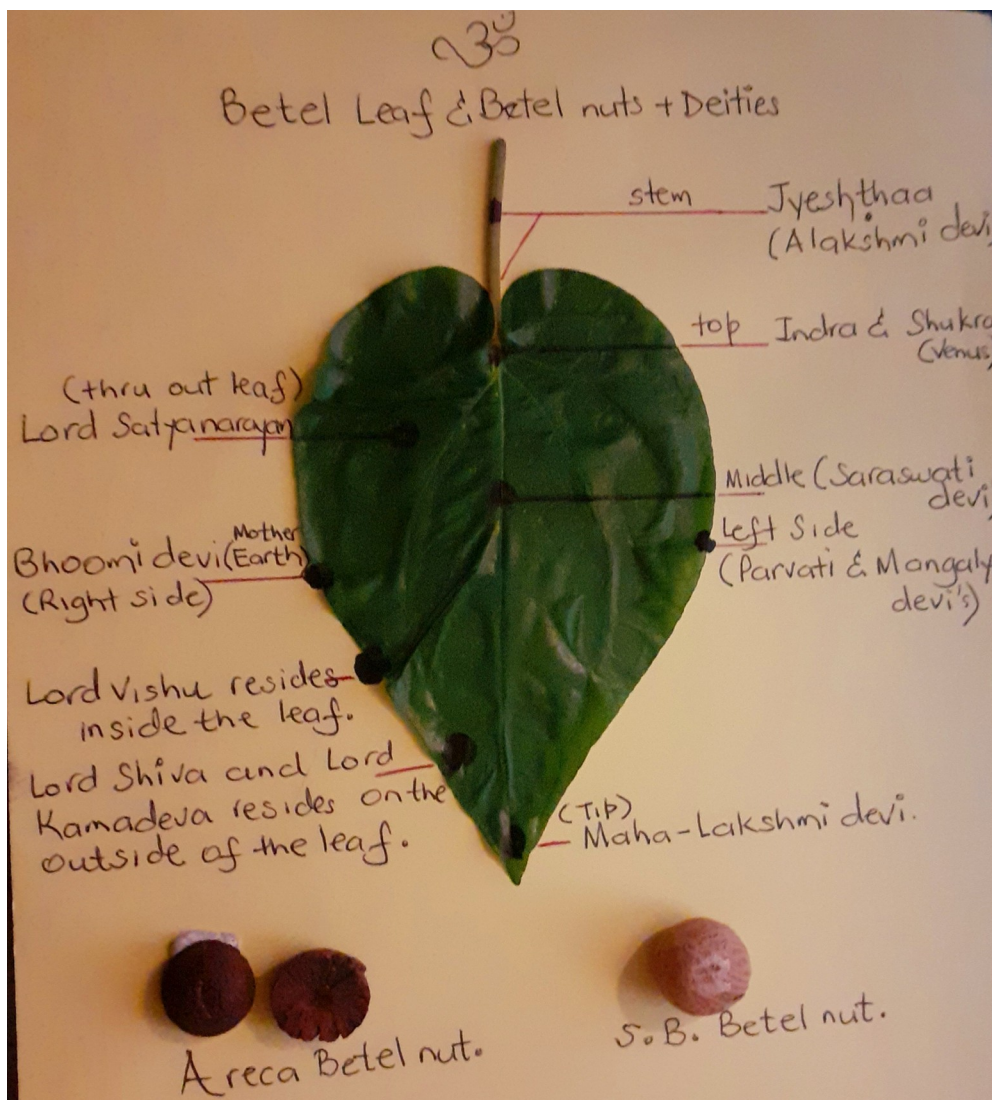 ॐ
Betel Leaf & Betel nuts + Deities
stem
Jyeshthaa
(Alakshmi devi)
top
Indra & Shukra
(Venus)
(thru out leaf)
Lord Satyanarayan
Middle (Saraswati
devi
Left Side
(Parvati & Mangaly
devi's)
Mother
Bhoomi devi (Earth)
(Right side)
Lord Vishu resides
inside the leaf.
Lord Shiva and Lord
Kamadeva resides on the
outside of the leaf.
(Tip)
Maha-Lakshmi devi.
Areca Betel nut.
S.B. Betel nut.